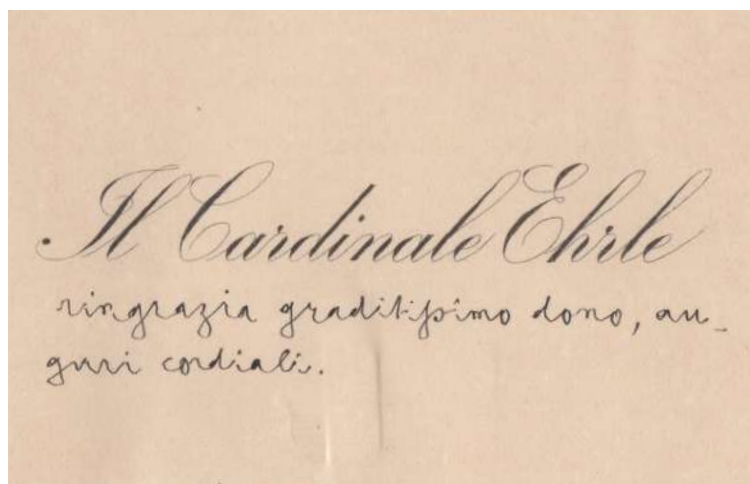 Il Cardinale Ehrle
ringrazia graditissimo dono, au-
guri cordiali.